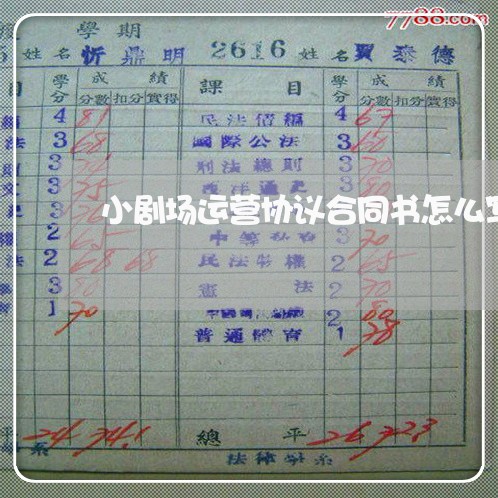 7788.com
學期
姓名 忻鼎明 2616 姓名 賈泰德
目 學分 成績 課目 學分 成績
分數 扣分 實得 分數 扣分 實得
4 81 民法債編 4 67
法 3 68 國際公法 3 60
3 刑法總則 3 70
3 75 西洋通史 3 80
小剧场运营协议合同书怎么写
2 65 3 70
法 2 68 68 民法物權 2 65
3 80 憲法 2 70
1 70 2 80
普通體育 1 78
平 24 74.1 總平 26 72.3
系 法律學系